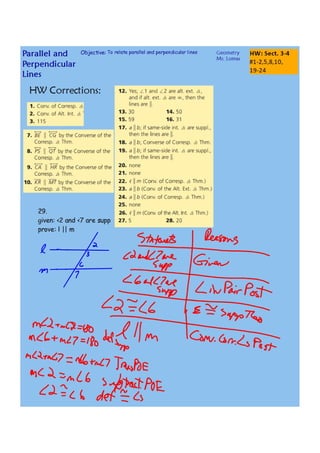 Parallel and Perpendicular Lines
Objective: To relate parallel and perpendicular lines
Geometry
Mr. Lomas
HW: Sect. 3-4
#1-2,5,8,10,
19-24
HW Corrections:
1. Conv. of Corresp. ∠s
2. Conv. of Alt. Int. ∠s
3. 115
7. BE || CG by the Converse of the
Corresp. ∠s Thm.
8. PS || QT by the Converse of the
Corresp. ∠s Thm.
9. CA || HR by the Converse of the
Corresp. ∠s Thm.
10. KR || MT by the Converse of the
Corresp. ∠s Thm.
12. Yes; ∠1 and ∠2 are alt. ext. ∠s,
and if alt. ext. ∠s are ≅, then the
lines are ||.
13. 30 14. 50
15. 59 16. 31
17. a || b; if same-side int. ∠s are suppl.,
then the lines are ||.
18. a || b; Converse of Corresp. ∠s Thm.
19. a || b; if same-side int. ∠s are suppl.,
then the lines are ||.
20. none
21. none
22. r || m (Conv. of Corresp. ∠s Thm.)
23. a || b (Conv. of the Alt. Ext. ∠s Thm.)
24. a || b (Conv. of Corresp. ∠s Thm.)
25. none
26. r || m (Conv. of the Alt. Int. ∠s Thm.)
27. 5 28. 20
29.
given: <2 and <7 are supp
prove: l || m
l 2
3
m 6
7
Statements Reasons
∠2 and ∠7 are supp Given
∠6 and ∠7 are supp Lin Pair Post
∠2 ≅ ∠6 ≅ Supps Thm
l || m Conv. Corr. ∠s Post
m∠2+m∠7=180
m∠6+m∠7=180 def supp
m∠2+m∠7=m∠6+m∠7 Trans POE
m∠2=m∠6 subtract POE
∠2≅∠6 def ≅ ∠s